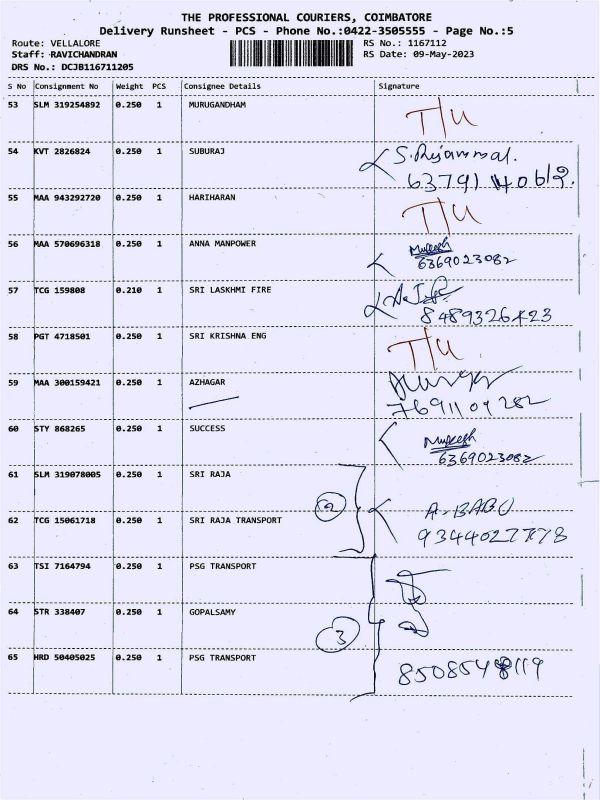 THE PROFESSIONAL COURIERS, COIMBATORE
Delivery Runsheet - PCS - Phone No.:0422-3505555 - Page No.:5
Route: VELLALORE RS No.: 1167112
Staff: RAVICHANDRAN RS Date: 09-May-2023
DRS No.: DCJB116711205
S No Consignment No Weight PCS Consignee Details Signature
53 SLM 319254892 0.250 1 MURUGANDHAM T/U
54 KVT 2826824 0.250 1 SUBURAJ S.Rejammal.
55 MAA 943292720 0.250 1 HARIHARAN T/U
56 MAA 570696318 0.250 1 ANNA MANPOWER Mukesh
6369023082
57 TCG 159808 0.210 1 SRI LASKHMI FIRE
58 PGT 4718501 0.250 1 SRI KRISHNA ENG T/U
59 MAA 300159421 0.250 1 AZHAGAR
60 STY 868265 0.250 1 SUCCESS Mukesh
6369023082
61 SLM 319078005 0.250 1 SRI RAJA
2 A-BABU
62 TCG 15061718 0.250 1 SRI RAJA TRANSPORT 9344027778
63 TSI 7164794 0.250 1 PSG TRANSPORT
64 STR 338407 0.250 1 GOPALSAMY
3
65 HRD 50405025 0.250 1 PSG TRANSPORT 8508548119